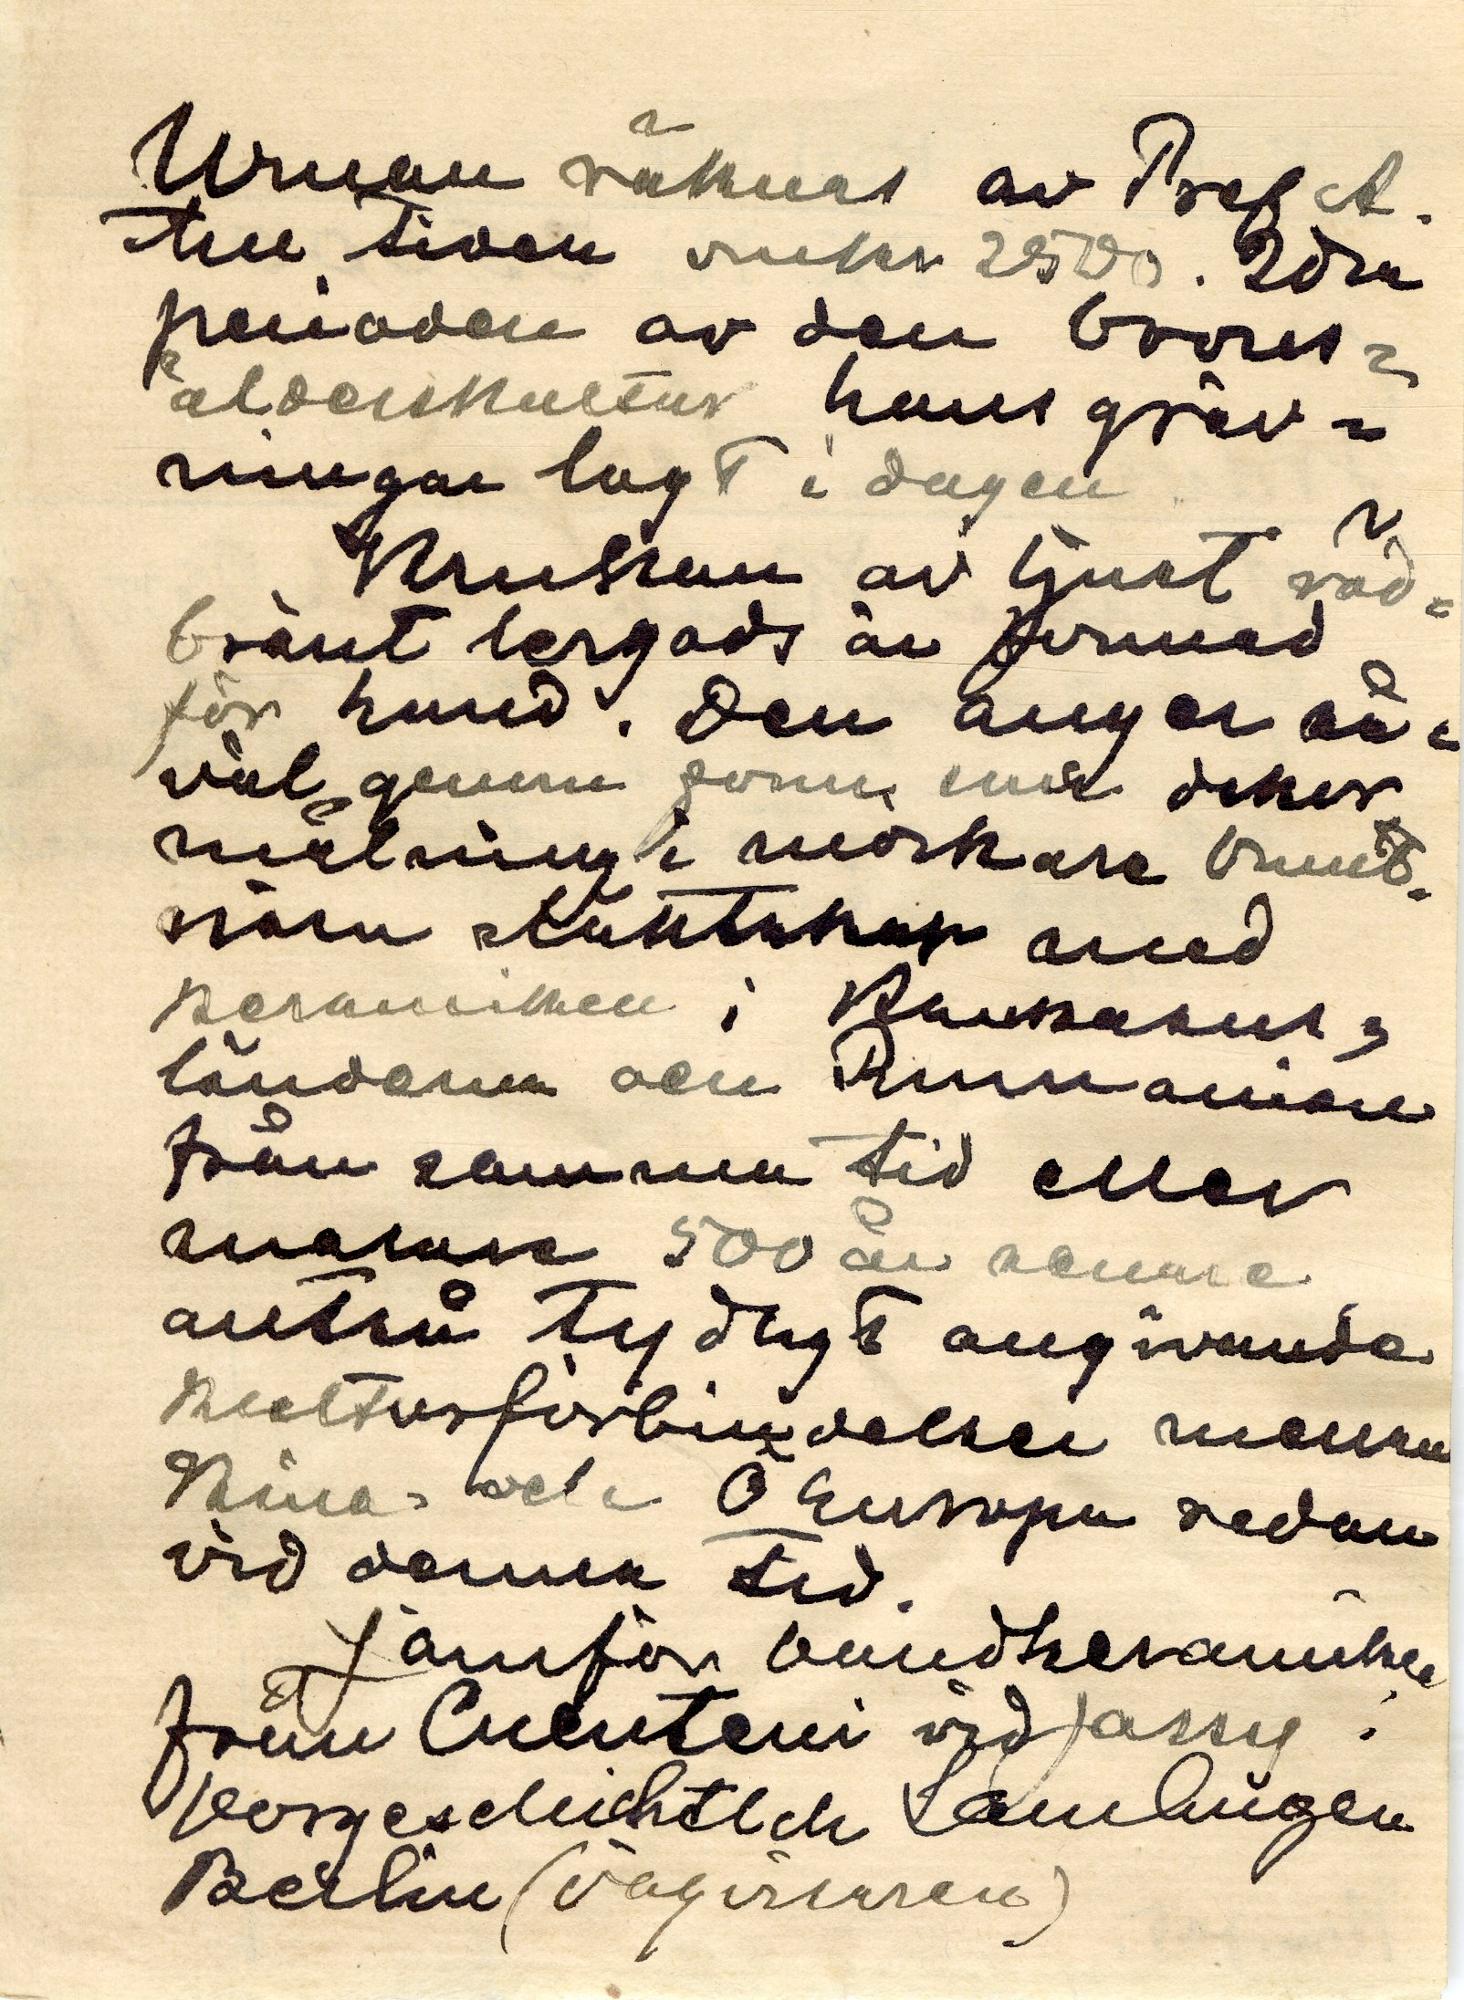 Urnan räknas av Prof A.
till tiden omkr 2500. 2dra
perioden av den brons=
ålderskultur hans gräv=
ningar lagt i dagen
Krukan av ljust röd=
bränt lergods är formad
för hand. Den anger så=
väl genom form som dekor
målning i mörkare brunt.
nära släktskap med
keramiken i Kaukasus=
länderna och Rumanien
från samma tid eller
500 år senare
antså tydligt angivande
kulturförbindelser mellan
Kina och Ö Europa redan
vid denna tid.
Jämför bandkeramiken
från Cucuteni vid Jassy i
Vorgeschichtlich Samlungen
Berlin (vägvisaren)